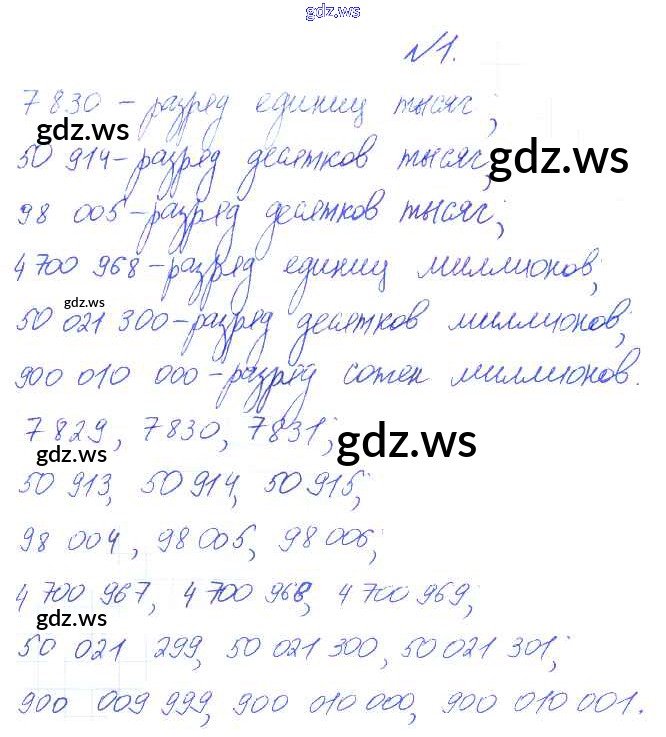 gdz.ws
№1.
7 830 - разряд единиц тысяч;
gdz.ws
50 914 - разряд десятков тысяч;
gdz.ws
98 005 - разряд десятков тысяч;
4 700 968 - разряд единиц миллионов;
gdz.ws
50 021 300 - разряд десятков миллионов;
900 010 000 - разряд сотен миллионов.
7 829, 7 830, 7 831;
gdz.ws
gdz.ws
50 913, 50 914, 50 915;
98 004, 98 005, 98 006;
4 700 967, 4 700 968, 4 700 969;
gdz.ws
gdz.ws
50 021 299, 50 021 300, 50 021 301;
900 009 999, 900 010 000, 900 010 001.